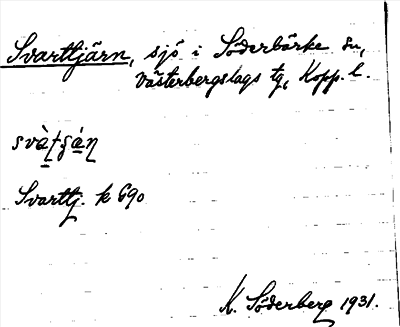 Svarttjärn, sjö i Söderbärke sn,
Västerbergslags tg, Kopp. l.
Svarttj. k 690
K. Söderberg 1931.